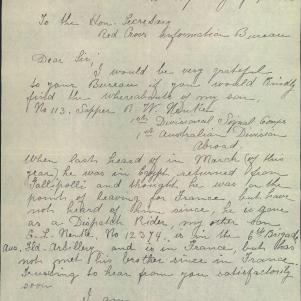 To the Hon. Secretary
Red Cross Information Bureau
Dear Sir,
I would be very grateful
to your Bureau if you would kindly
find the whereabouts of my son,
No 113. Sapper B. W. Nenke
1st Divisional Signal Comps
1st Australian Division
Abroad.
When last heard of in March of this
year he was in Egypt, returned from
Gallipolli and thought he was on the
point of leaving for France but have
not heard of him since, he is gone
as a Dispatch Rider, my other son
E. L. Nenke No 12374. is in the 6th Brigade
Aus. Fld. Artillery and is in France, but has
not met his brother since in France.
Trusting to hear from you satisfactorily
soon
I am